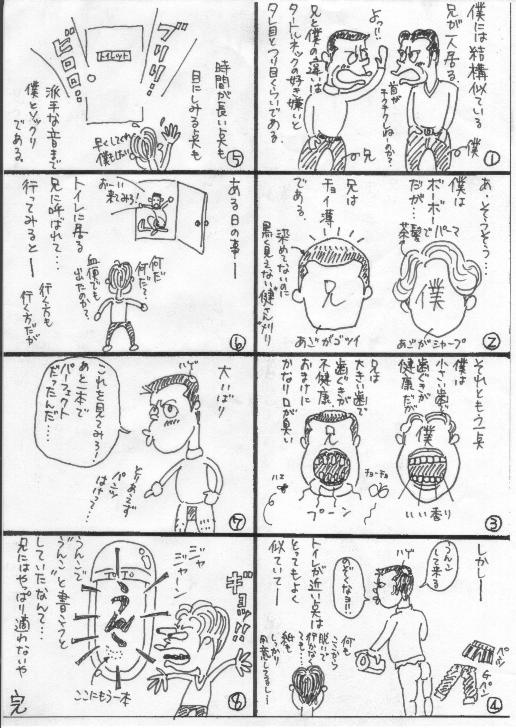 僕には結構似ている
兄が一人居る。
よっ!!
兄と僕の違いは
タートルネックの好き嫌いと
タレ目とつり目くらいである。
首が
チクチクしねーのか?
兄
僕
①
あ、そうそう…
僕は
ボーボー
だが…
茶髪でパーマ
兄は
チョイ薄
である。
染めてないのに
黒く見えない健さん刈り
兄
僕
あごがゴツイ
あごがシャープ
②
それともう一点
僕は
小さい歯で
歯ぐきが
健康だが
兄は
大きい歯で
歯ぐきが
不健康
おまけに
かなり口が臭い
兄
僕
ハエ
プーン
チョーチョ
いい香り
③
しかし―
うんこ
して来る
のぞくなヨ!!
ハゲ
トイレが近い点は
とってもよく
似ていて―
何も
ここから
脱いで
行かなく
ても…
紙も
しっかり
用意してるし…
Gパン
④
ブリリ!
ビロロ
トイレット
時間が長い点も
目にしみる点も
派手な音まで
僕とソックリ
である。
早くしてくれ
僕もしたい
⑤
ある日の事―
おーい
来てみろ!
トイレに居る
兄に呼ばれて…
行ってみると―
何だ
何だ?
血便でも
出たのか?
行く方も
行く方だが
⑥
大いばり
ハゲ
これを見てみろ?!
あと一本で
パーフェクト
だったんだ…
とりあえず
パンツ
はいて…
⑦
ギョッ!!
ジャ
ジャーン
TOTO
うんこ
うんこで
"うんこ"と書こうと
していたなんて…
兄にはやっぱり適わないや
ここにもう一本
⑧
完